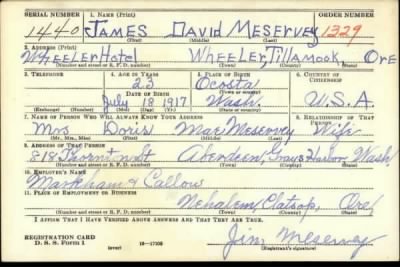 SERIAL NUMBER 1. NAME (Print) ORDER NUMBER
1440 JAMES David MESERVEY 1329
(First) (Middle) (Last)
2. ADDRESS (Print)
WHEELER Hotel WHEELER, Tillamook Ore
(Number and street or R. F. D. number) (Town) (County) (State)
3. TELEPHONE 4. AGE IN YEARS 5. PLACE OF BIRTH 6. COUNTRY OF CITIZENSHIP
23 Ocosta
DATE OF BIRTH (Town or county)
July 18 1917 Wash. U.S.A.
(Exchange) (Number) (Mo.) (Day) (Yr.) (State or country)
7. NAME OF PERSON WHO WILL ALWAYS KNOW YOUR ADDRESS 8. RELATIONSHIP OF THAT PERSON
Mrs Doris Mae Meservey Wife
(Mr., Mrs., Miss) (First) (Middle) (Last)
9. ADDRESS OF THAT PERSON
818 Thornton St Aberdeen, Grays Harbor, Wash
(Number and street or R. F. D. number) (Town) (County) (State)
10. EMPLOYER'S NAME
Markham & Callow
11. PLACE OF EMPLOYMENT OR BUSINESS
Nehalem, Clatsop, Ore
(Number and street or R. F. D. number) (Town) (County) (State)
I AFFIRM THAT I HAVE VERIFIED ABOVE ANSWERS AND THAT THEY ARE TRUE.
REGISTRATION CARD
D. S. S. Form 1 (over) Jim Meservey
(Registrant's signature)